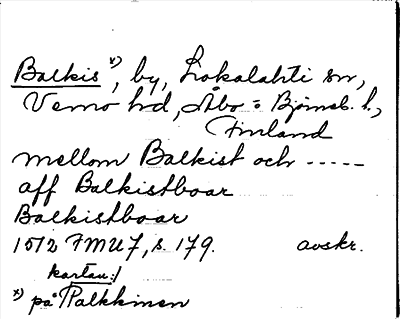 Balkis x), by, Lokalahti sn,
Vemo hd, Åbo = Björneb. l.,
Finland
mellom Balkist och -----
aff Balkistboar
Balkistboar
1512 FMU 7, s. 179. avskr.
kartan:/
x) på Palkkinen